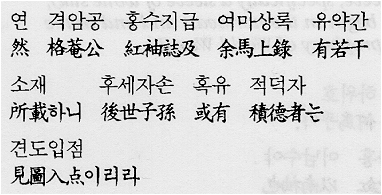 연 격암공 홍수지급 여마상록 유약간
然 格菴公 紅神誌及 余馬上錄 有若干
소재 후세자손 혹유 적덕자
所載하니 後世子孫 或有 積德者는
견도입점
見圖入点이리라